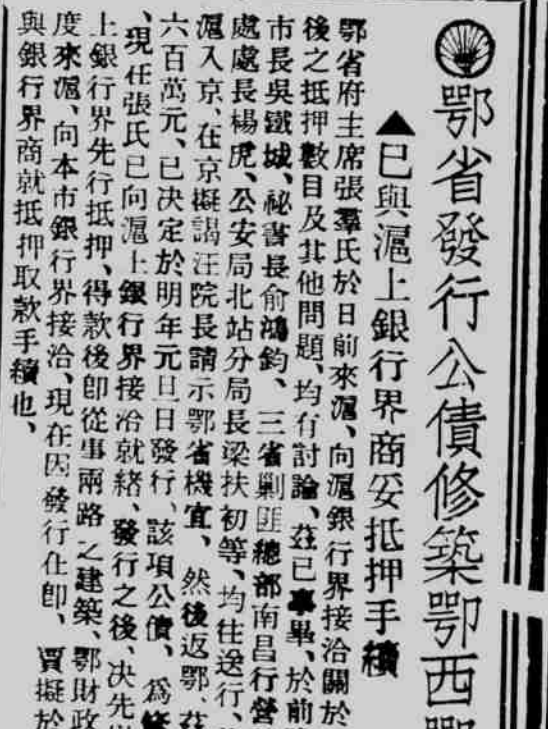 鄂省發行公債修築鄂西鄂
▲已與滬上銀行界商妥抵押手續
鄂省府主席張羣氏於日前來滬、向滬銀行界接洽關於
後之抵押數目及其他問題、均有討論、茲已事畢、於前
市長吳鐵城、祕書長俞鴻鈞、三省剿匪總部南昌行營
處處長楊虎、公安局北站分局長梁扶初等、均往送行、
滬入京、在京擬謁汪院長請示鄂省機宜、然後返鄂、茲
六百萬元、已決定於明年元旦日發行、該項公債、爲修
、現任張氏已向滬上銀行界接洽就緒、發行之後、决先以
上銀行界先行抵押、得款後卽從事兩路之建築、鄂財政
度來滬、向本市銀行界接洽、現在因發行在卽、賈擬於
與銀行界商就抵押取款手續也、